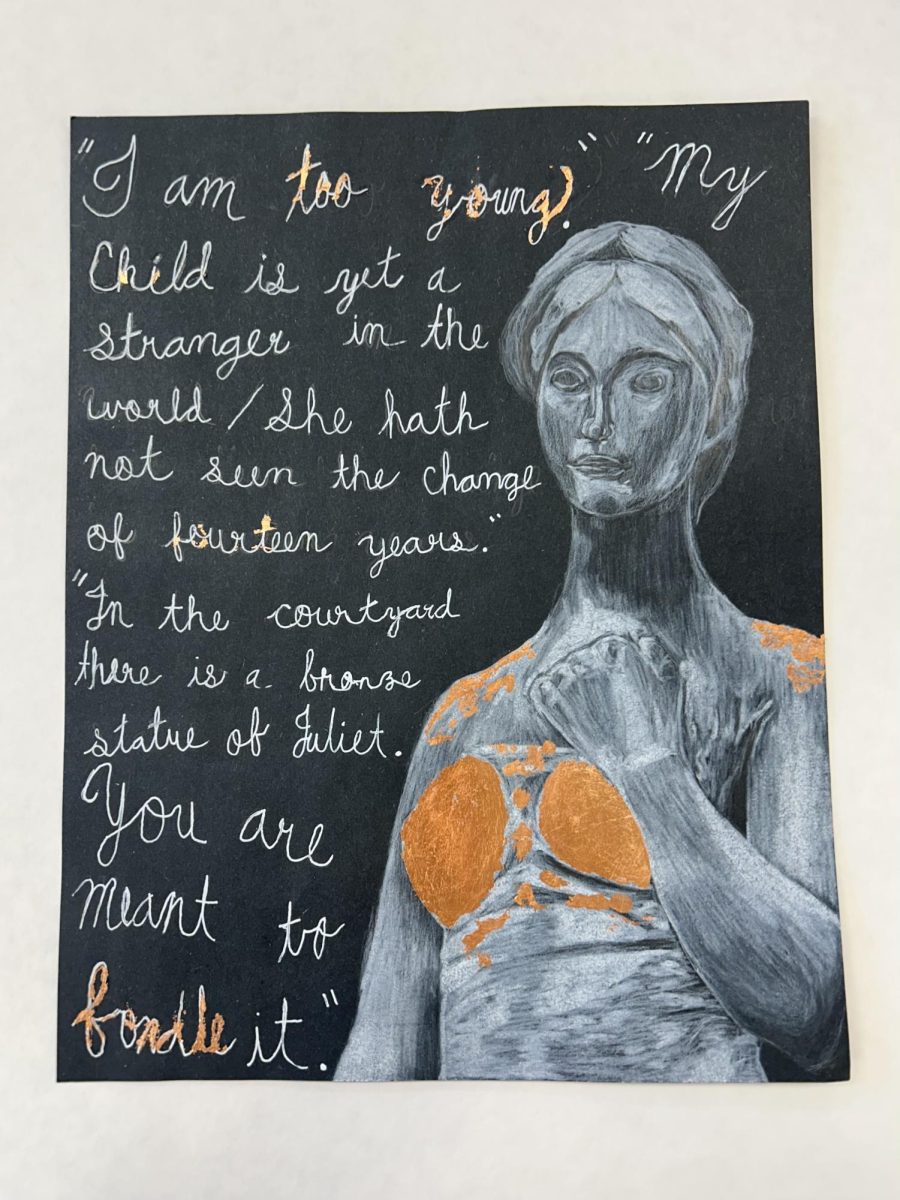 "I am too young." "My
Child is yet a
stranger in the
world / She hath
not seen the change
of fourteen years."
"In the courtyard
there is a bronze
statue of Juliet.
You are
meant to
fondle it."